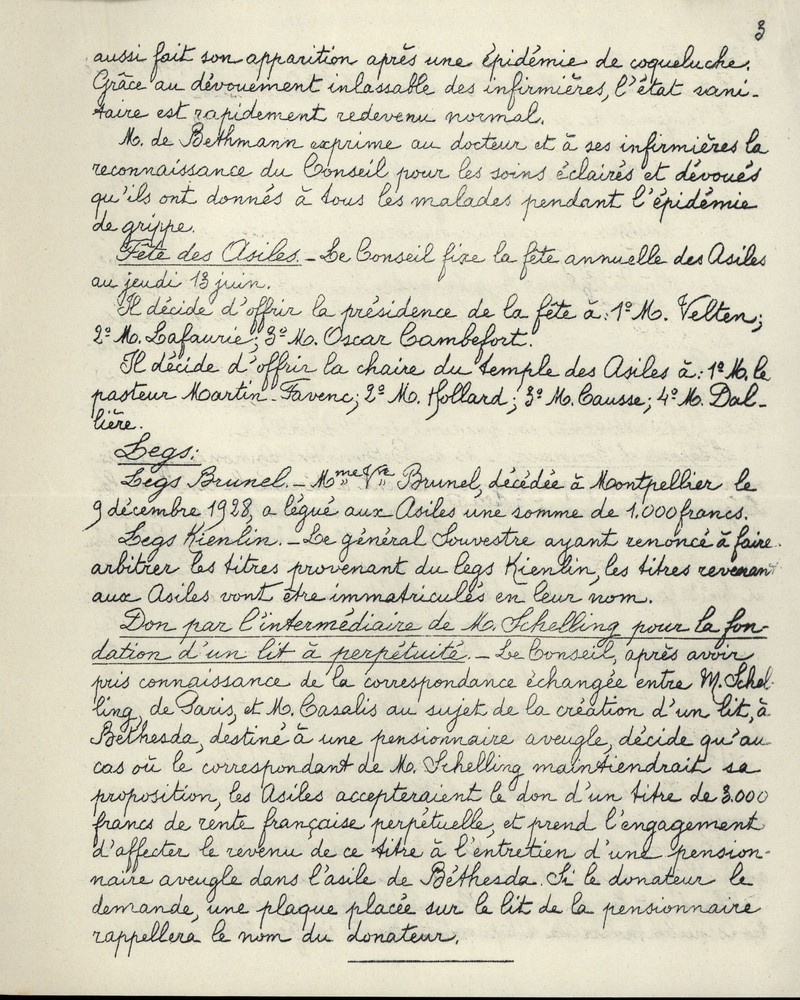 3
aussi fait son apparition après une épidémie de coqueluche.
Grâce au dévouement inlassable des infirmières, l'état sani-
taire est rapidement redevenu normal.
M. de Bethmann exprime au docteur et à ses infirmières la
reconnaissance du Conseil pour les soins éclairés et dévoués
qu'ils ont donnés à tous les malades pendant l'épidémie
de grippe.
Fête des Asiles. - Le Conseil fixe la fête annuelle des Asiles
au jeudi 13 juin.
Il décide d'offrir la présidence de la fête à : 1º M. Velten ;
2º M. Lafaurie ; 3º M. Oscar Cambefort.
Il décide d'offrir la chaire du temple des Asiles à : 1º M. le
pasteur Martin-Favenc ; 2º M. Hollard ; 3º M. Causse ; 4º M. Dal-
lière.
Legs :
Legs Brunel. - Mme Vve Brunel, décédée à Montpellier le
9 décembre 1928, a légué aux Asiles une somme de 1.000 francs.
Legs Kienlin. - Le général Souvestre ayant renoncé à faire
arbitrer les titres provenant du legs Kienlin, les titres revenant
aux Asiles vont être immatriculés en leur nom.
Don par l'intermédiaire de M. Schelling pour la fon-
dation d'un lit à perpétuité. - Le Conseil, après avoir
pris connaissance de la correspondance échangée entre M. Schel-
ling, de Paris, et M. Casalis au sujet de la création d'un lit, à
Béthesda, destiné à une pensionnaire aveugle, décide qu'au
cas où le correspondant de M. Schelling maintiendrait sa
proposition, les Asiles accepteraient le don d'un titre de 3.000
francs de rente française perpétuelle, et prend l'engagement
d'affecter le revenu de ce titre à l'entretien d'une pension-
naire aveugle dans l'asile de Béthesda. Si le donateur le
demande, une plaque placée sur le lit de la pensionnaire
rappellera le nom du donateur.